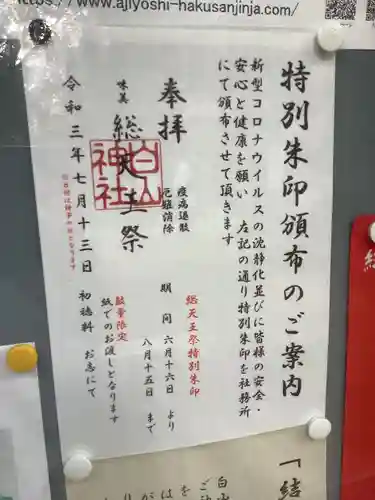 https://www.ajiyoshi-hakusanjinja.com/
特別朱印頒布のご案内
新型コロナウイルスの沈静化並びに皆様の安全・
安心と健康を願い 左記の通り特別朱印を社務所
にて頒布させて頂きます
奉拝
疫病退散
厄難消除
味美
総天王祭
白山
神社
令和三年七月十三日
総天王祭特別朱印
期間 六月十六日 より
八月十五日 まで
数量限定
紙でのお渡しとなります
初穂料 お志にて
「結
白山